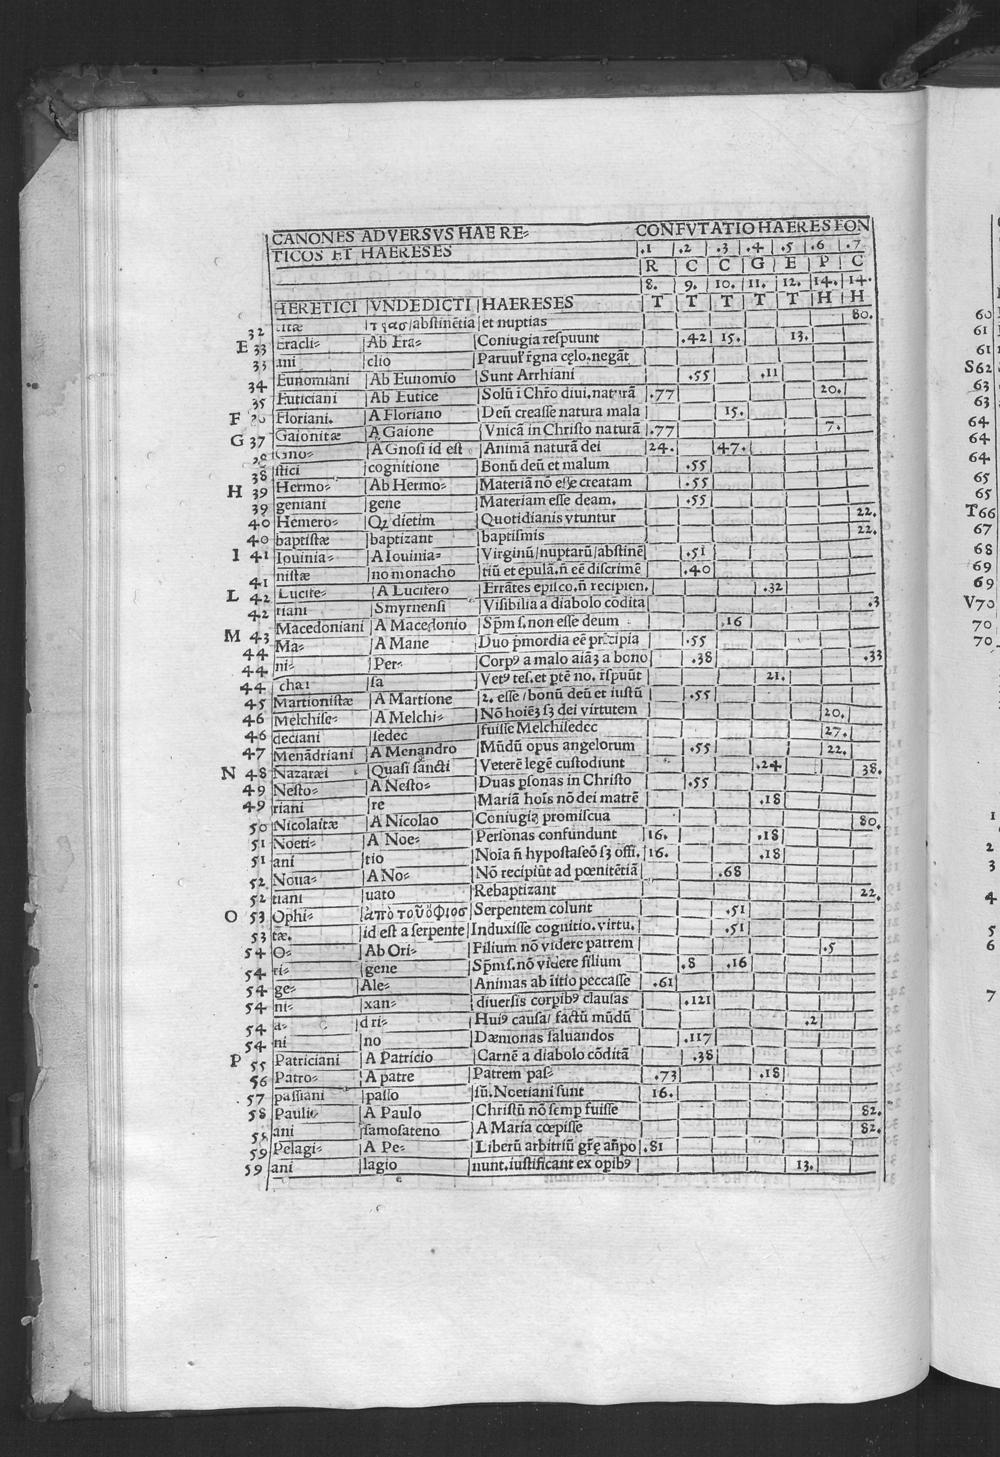 CANONES ADVERSVS HAERE⸗ CONFVTATIO HAERES EON
TICOS ET HAERESES .1 .2 .3 .4 .5 .6 .7
R C C G E P C
8. 9. 10. 11. 12. 14. 14.
HERETICI VNDEDICTI HAERESES T T T T T H H
32 abstinētia et nuptias 80.
E 33 Eracli⸗ Ab Era⸗ Coniugia respuunt .42 15. 13.
33 ani clio Paruul' r̄gna cęlo.negāt
34 Eunomiani Ab Eunomio Sunt Arrhiani .55 .11
35 Euticiani Ab Eutice Solū ī Chr̄o diui.naturā .77 20.
F Floriani. A Floriano Deū creasse natura mala 15.
G 37 Gaionitæ A Gaione Vnicā in Christo naturā .77 7.
Gno⸗ A Gnosi id est Animā naturā dei 24. 47.
38 stici cognitione Bonū deū et malum .55
H 39 Hermo⸗ Ab Hermo⸗ Materiā nō esse creatam .55
39 geniani gene Materiam esse deam. .55
40 Hemero⸗ Qꝫ dietim Quotidianis vtuntur 22.
40 baptistæ baptizant baptismis 22.
I 41 Iouinia⸗ A Iouinia⸗ Virginū/nuptarū/abstinē .51
41 nistæ no monacho tiū et epulā.n̄ eē discrimē .40
L 42 Lucife⸗ A Lucifero Errātes episco.n̄ recipien. .32
42 riani Smyrnensi Visibilia a diabolo codita .3
M 43 Macedoniani A Macedonio Sp̄m s.non esse deum .16
44 Ma⸗ A Mane Duo p̄mordia eē prīcipia .55
44 ni⸗ Per⸗ Corpꝰ a malo aiāꝫ a bono .38 .33
44 chæi sa Vetꝰ tes.et ptē no. r̄spuūt 21.
45 Martionistæ A Martione 2. esse/bonū deū et iustū .55
46 Melchise⸗ A Melchi⸗ Nō hoiēꝫ sꝫ dei virtutem 20.
46 deciani sedec fuisse Melchisedec 27.
47 Menādriani A Menandro Mūdū opus angelorum .55 22.
N 48 Nazaræi Quasi sancti Veterē legē custodiunt .24 38.
49 Nesto⸗ A Nesto⸗ Duas psonas in Christo .55
49 riani re Mariā hoīs nō dei matrē .18
50 Nicolaitæ A Nicolao Coniugia promiscua 80.
51 Noeti⸗ A Noe⸗ Personas confundunt 16. .18
51 ani tio Noia n̄ hypostaseō sꝫ offi. 16. .18
52 Noua⸗ A No⸗ Nō recipiūt ad pœnitētiā .68
52 tiani uato Rebaptizant 22.
O 53 Ophi⸗ ἀπὸ τοῦ ὄφιοσ Serpentem colunt .51
53 tæ. id est a serpente Induxisse cognitio.virtu. .51
54 O⸗ Ab Ori⸗ Filium nō videre patrem .5
54 ri⸗ gene Sp̄m s.nō videre filium .8 .16
54 ge⸗ Ale⸗ Animas ab īitio peccasse .61
54 ni⸗ xan⸗ diuersis corpibꝰ clausas .121
54 a⸗ dri⸗ Huiꝰ causa/ factū mūdū .2
54 ni no Dæmonas saluandos .117
P 55 Patriciani A Patricio Carnē a diabolo cōditā .38
56 Patro⸗ A patre Patrem pas⸗ .73 .18
57 passiani passo sū.Noetiani sunt 16.
58 Pauli⸗ A Paulo Christū nō semp fuisse 82.
58 ani samosateno A Maria cœpisse 82.
59 Pelagi⸗ A Pe⸗ Liberū arbitriū gr̄ę an̄po .81
59 ani lagio nunt.iustificant ex opibꝰ 13.
e
60
61
61
S62
63
63
64
64
64
65
65
T66
67
68
69
69
V70
70
70
1
2
3
4
5
6
7